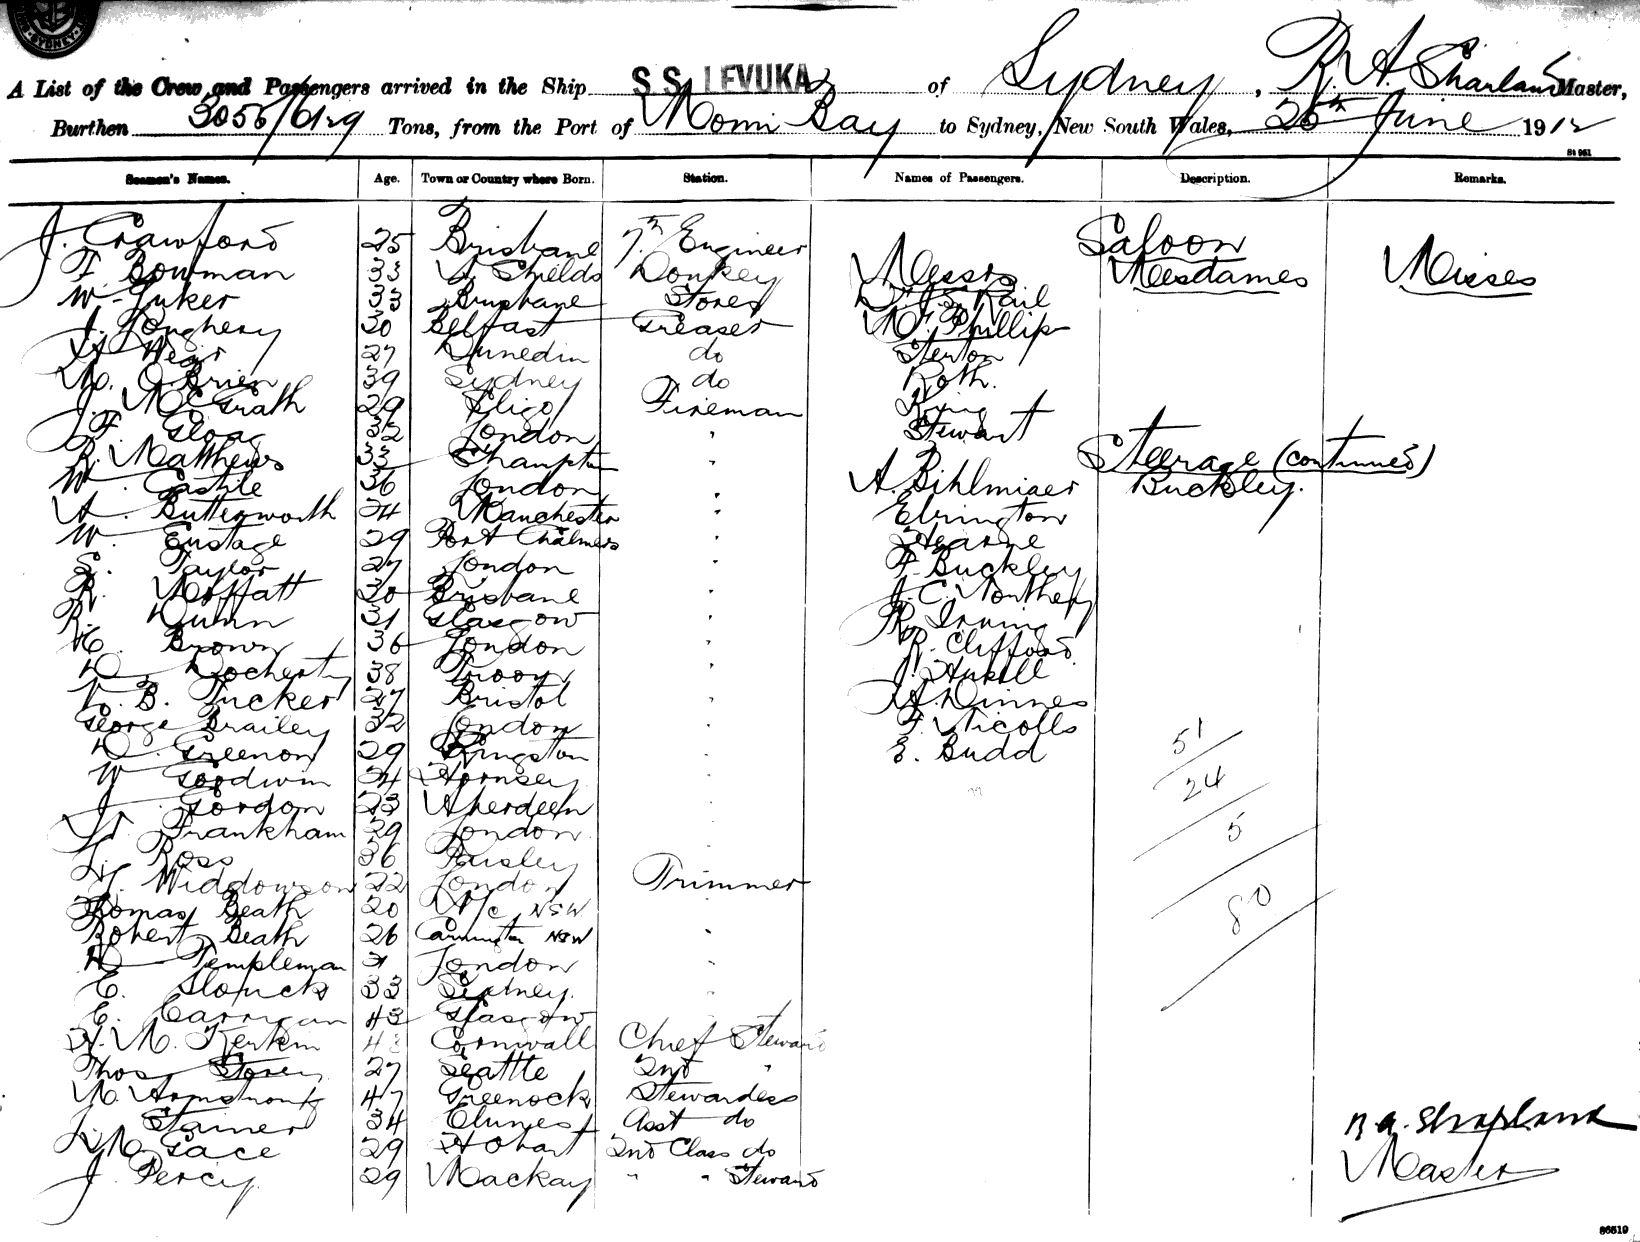 SYDNEY
A List of the Crew and Passengers arrived in the Ship S.S. LEVUKA of Sydney, R. A. Sharland Master,
Burthen 3056/6129 Tons, from the Port of Momi Bay to Sydney, New South Wales, 26th June 1912
Seamen's Names. Age. Town or Country where Born. Station. Names of Passengers. Description. Remarks.
J. Crawford 25 Brisbane 7th Engineer Saloon
F. Bowman 33 S. Shields Donkey Messrs Mesdames Misses
W. Juker 33 Brisbane Stores Rail
J. Loughery 30 Belfast Greaser Phillip
Weir 27 Dunedin do
M. O'Brien 39 Sydney do Roth.
J. McGrath 29 Sligo Fireman
F. Gloag 32 London " Stewart
R. Matthews 33 Shampton " Steerage (continued)
W. Castile 36 London " A. Bihlmiaer Buckley.
A. Butterworth 24 Manchester " Elrington
W. Eustage 29 Port Chalmers " Hearne
S. Taylor 27 London " F. Buckley
R. Moffatt 30 Brisbane " J. C. Northey
R. Dunn 31 Glasgow " R. Irving
C. Brown 36 London " R. Clifford
D. Docherty 38 Troon " J.
V. B. Tucker 27 Bristol " A. Dinnes
George Brailey 32 London " F. Nicolls
D. Greenon 29 Kingston " E. Budd 51
W. Goodwin 24 Hornsey " 24
J. Gordon 23 Aberdeen "
Frankham 29 London " 5
Ross 36 Paisley
J. Widdowson 22 London Trimmer
Thomas Beath 20 N/c NSW 80
Robert Beath 26 Carrington NSW "
D. Templeman London "
E. Slouch 33 Sydney. "
E. Carrigan 43 Glasgow
M. Kerkin Cornwall Chief Steward
Thos Storey 27 Seattle 2nd "
M. Armstrong 47 Greenock Stewardess
Stainer 34 Clunes Asst do
M. Gace 29 Hobart 2nd Class do
J. Percy. 29 Mackay " " Steward
R. A. Sharland
Master
86519